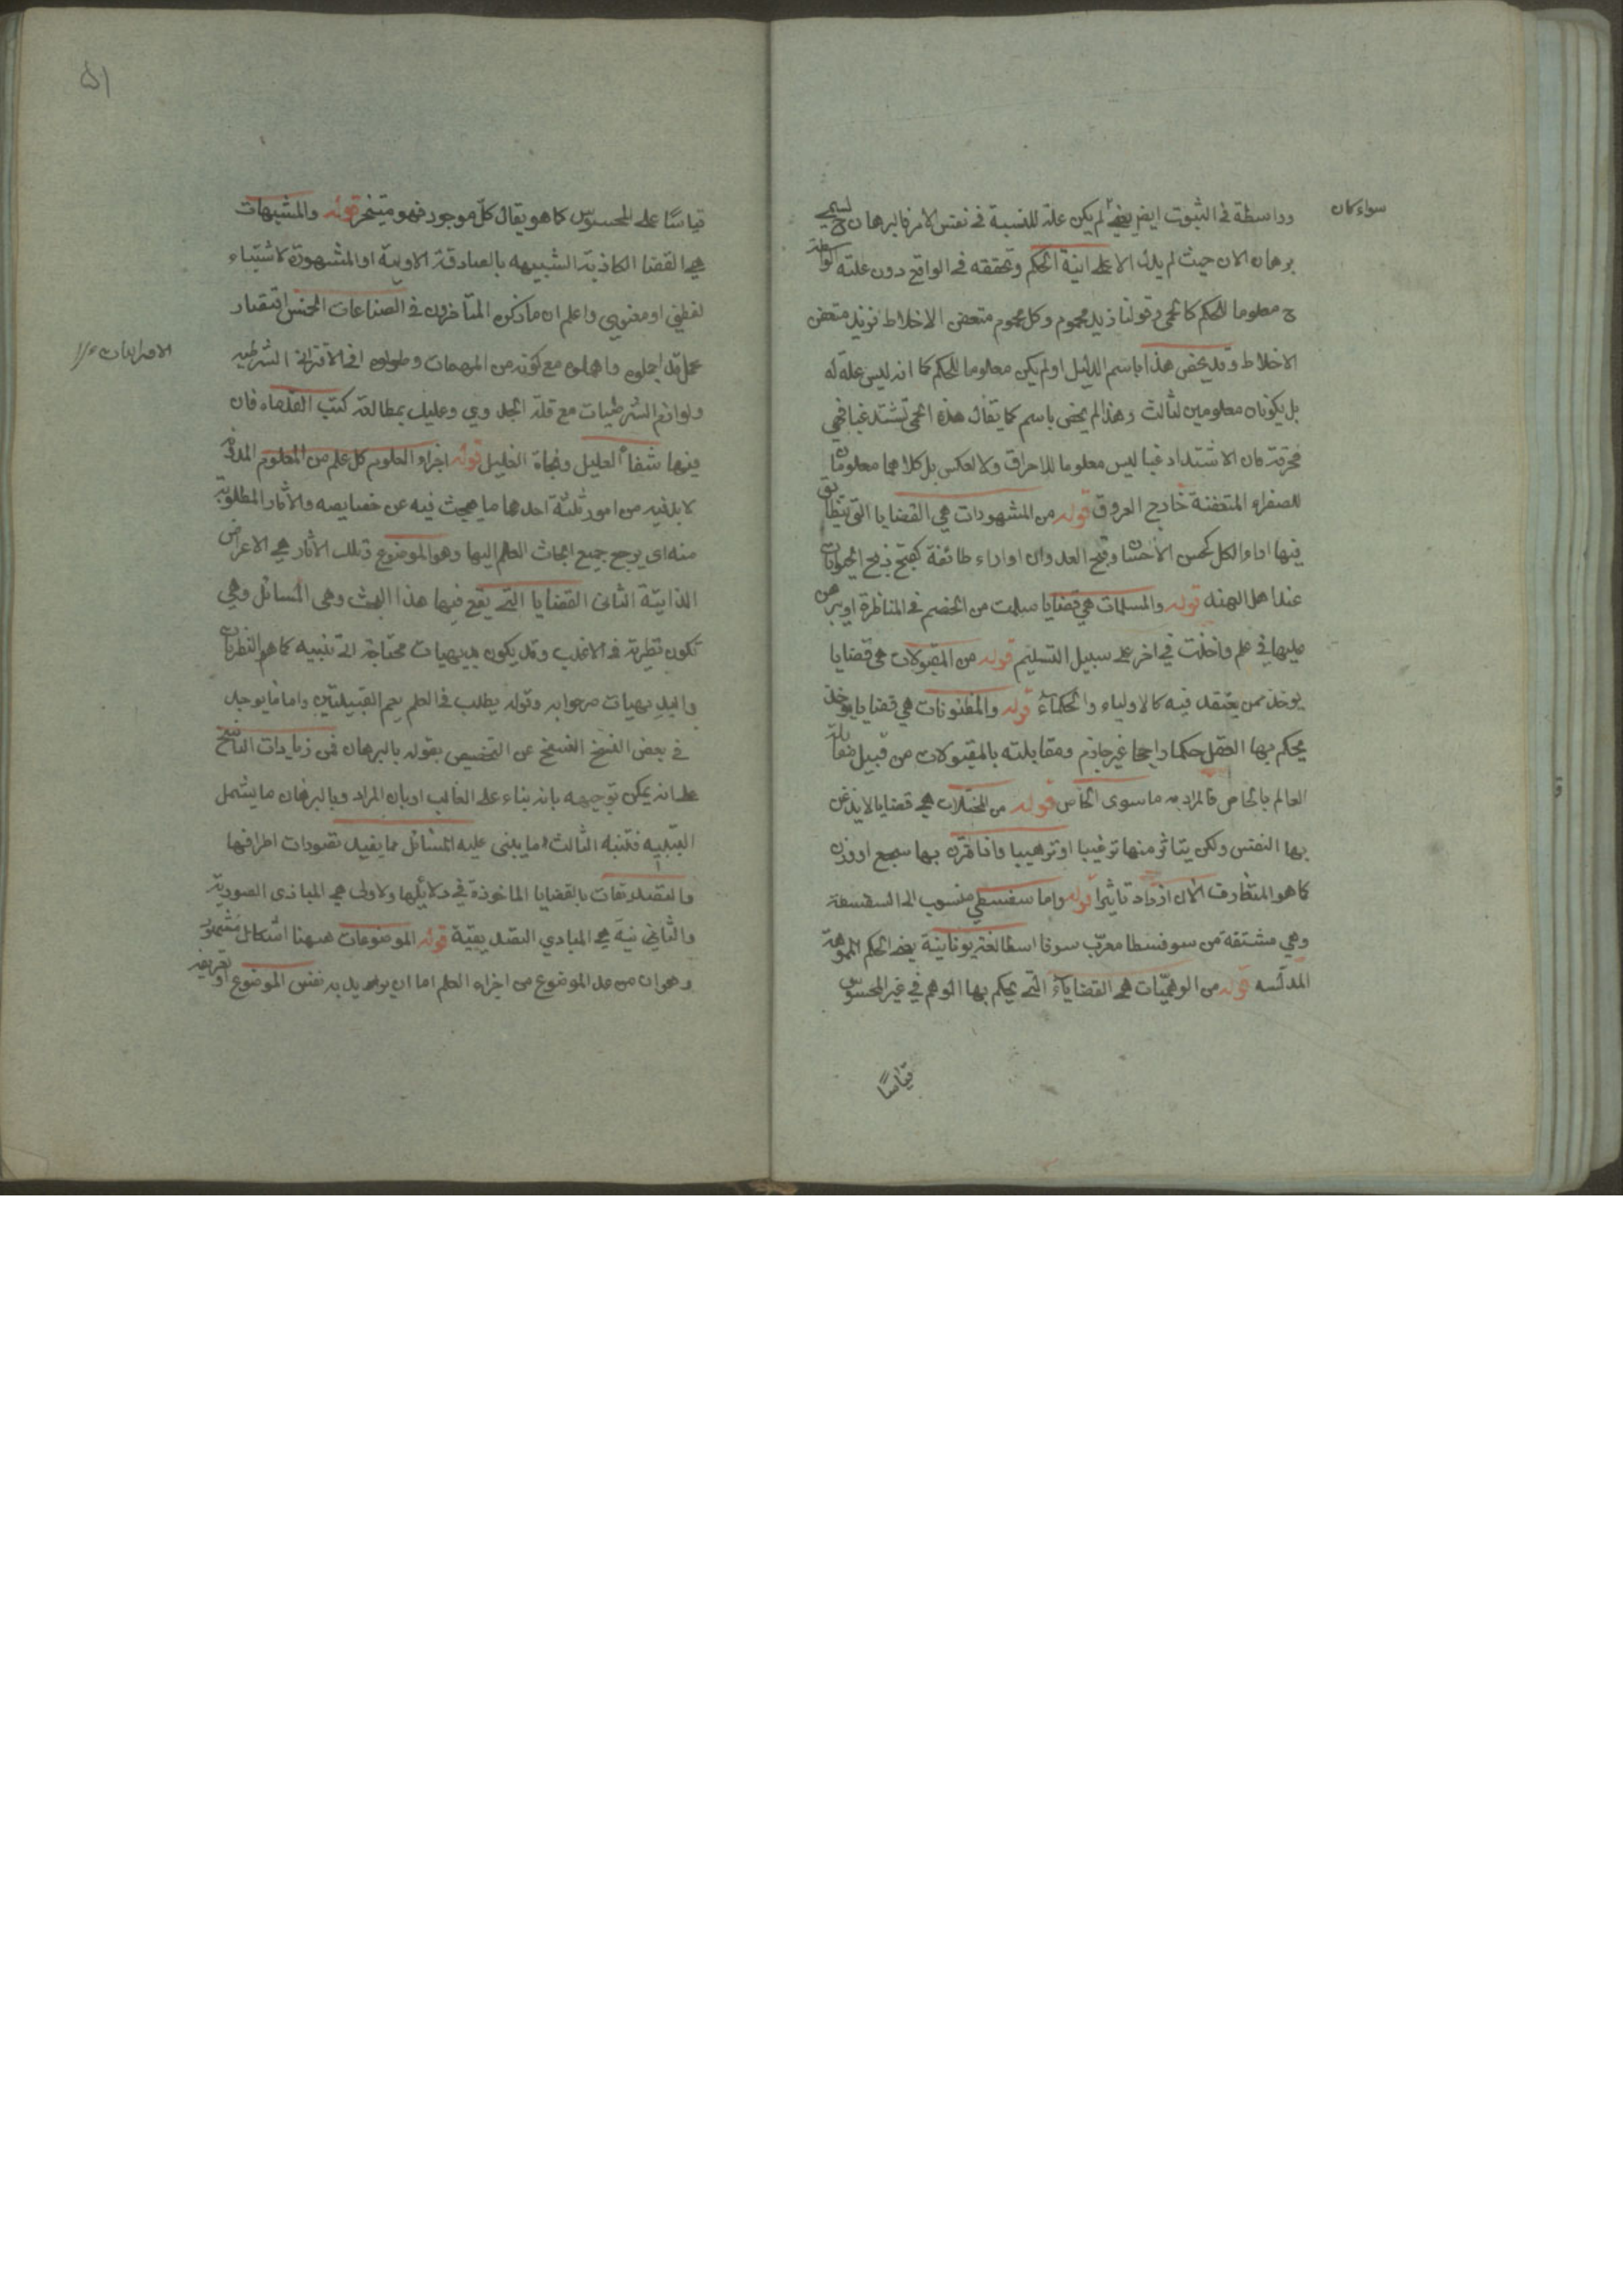 سواء كان
وواسطة في الثبوت ايض يعني لم يكن علة للنسبة في نفس الامر فالبرهان ح يسمى
برهان الان حيث لم يدل الا على انية الحكم وتحققه في الواقع دون علته الواسطة
ح معلوما للحكم كالحمى وقولنا زيد محموم وكل محموم متعفن الاخلاط فزيد متعفن
الاخلاط وقد يخص هذا باسم الدليل او لم يكن معلوما للحكم كما انه ليس علة له
بل يكونان معلومين لثالث وهذا لم يخص باسم كما يقال هذه الحمى تشتد غبا فهي
محرقة فان الاشتداد غبا ليس معلوما للاحراق ولا لعكس بل كلاهما معلومان
للصفراء المتعفنة خارج العروق قوله من المشهورات هي القضايا التي يتطابق
فيها اراء الكل كحسن الاحسان وقبح العدوان او اراء طائفة كقبح ذبح الحيوانات
عند اهل الهند قوله والمسلمات هي قضايا سلمت من الخصم في المناظرة او يبرهن
عليها في علم واخذت في اخر على سبيل التسليم قوله من المقبولات هي قضايا
يوخذ ممن يعتقد فيه كالاولياء والحكماء قوله والمظنونات هي قضايا يوخذ
يحكم بها العقل حكما راجحا غير جازم ومقابلته بالمقبولات من قبيل مقابلة
العالم بالخاص فالمراد به ما سوى الخاص قوله من المخيلات هي قضايا لا يذعن
بها النفس ولكن يتاثر منها ترغيبا او ترهيبا واذا قترن بها سجع او وزن
كما هو المتعارف الآن ازداد تاثيرا قوله واما سفسطي منسوب الى السفسطة
وهي مشتقة من سوفسطا معرب سوفا اسطا لغة يونانية يعني الحكم المموهة
المدلسه قوله من الوهميات هي القضايا التي يحكم بها الوهم في غير المحسوس
قياسًا
۵۱
قياسًا على المحسوس كما هو يقال كل موجود فهو متحيز قوله والمشبهات
هي القضا الكاذبة الشبيهه بالصادقة الاولية او المشهورة لاشتباه
لفظي او معنوي واعلم ان ما ذكره المتأخرون في الصناعات الخمس اقتصار
مخل قد اجملوه واهملوه مع كونه من المهمات وطولوه في الاقترانى الشرطيه
ولوازم الشرطيات مع قلة الجدوي وعليك بمطالعة كتب القدماء فان
فيها شفاء العليل ونجاة الغليل قوله اجزاء العلوم كل علم من العلوم المدونة
لا بد فيه من امور ثلثة احدها ما يبحث فيه عن خصايصه والآثار المطلوبة
منه اى يرجع جميع ابحاث العلم اليها وهو الموضوع وتلك الآثار هي الاعراض
الذاتية الثاني القضايا التي يقع فيها هذا البحث وهى المسائل وهي
تكون نظرية في الاغلب وقد يكون بديهيات محتاجة الى تنبيه كما هو النظريات
والبديهيات صرحوا به وقوله يطلب في العلم يعم القبيلتين واما ما يوجد
في بعض النسخ النسخ عن التخصيص بقوله بالبرهان فمن زيادات الناسخ
على انه يمكن توجيهه بانه بناء على الغالب او بان المراد وبالبرهان ما يشمل
التنبيه فتنبه الثالث ما يبنى عليه المسائل مما يفيد تصورات اطرافها
والتصديقات بالقضايا الماخوذة في دلائلها ولاولى هي المبادى الصورية
والثاني نية هي المبادي التصديقية قوله الموضوعات ههنا اشكال مشهور
وهو ان من عد الموضوع من اجزاء العلم اما ان يريد به نفس الموضوع او تعريفه